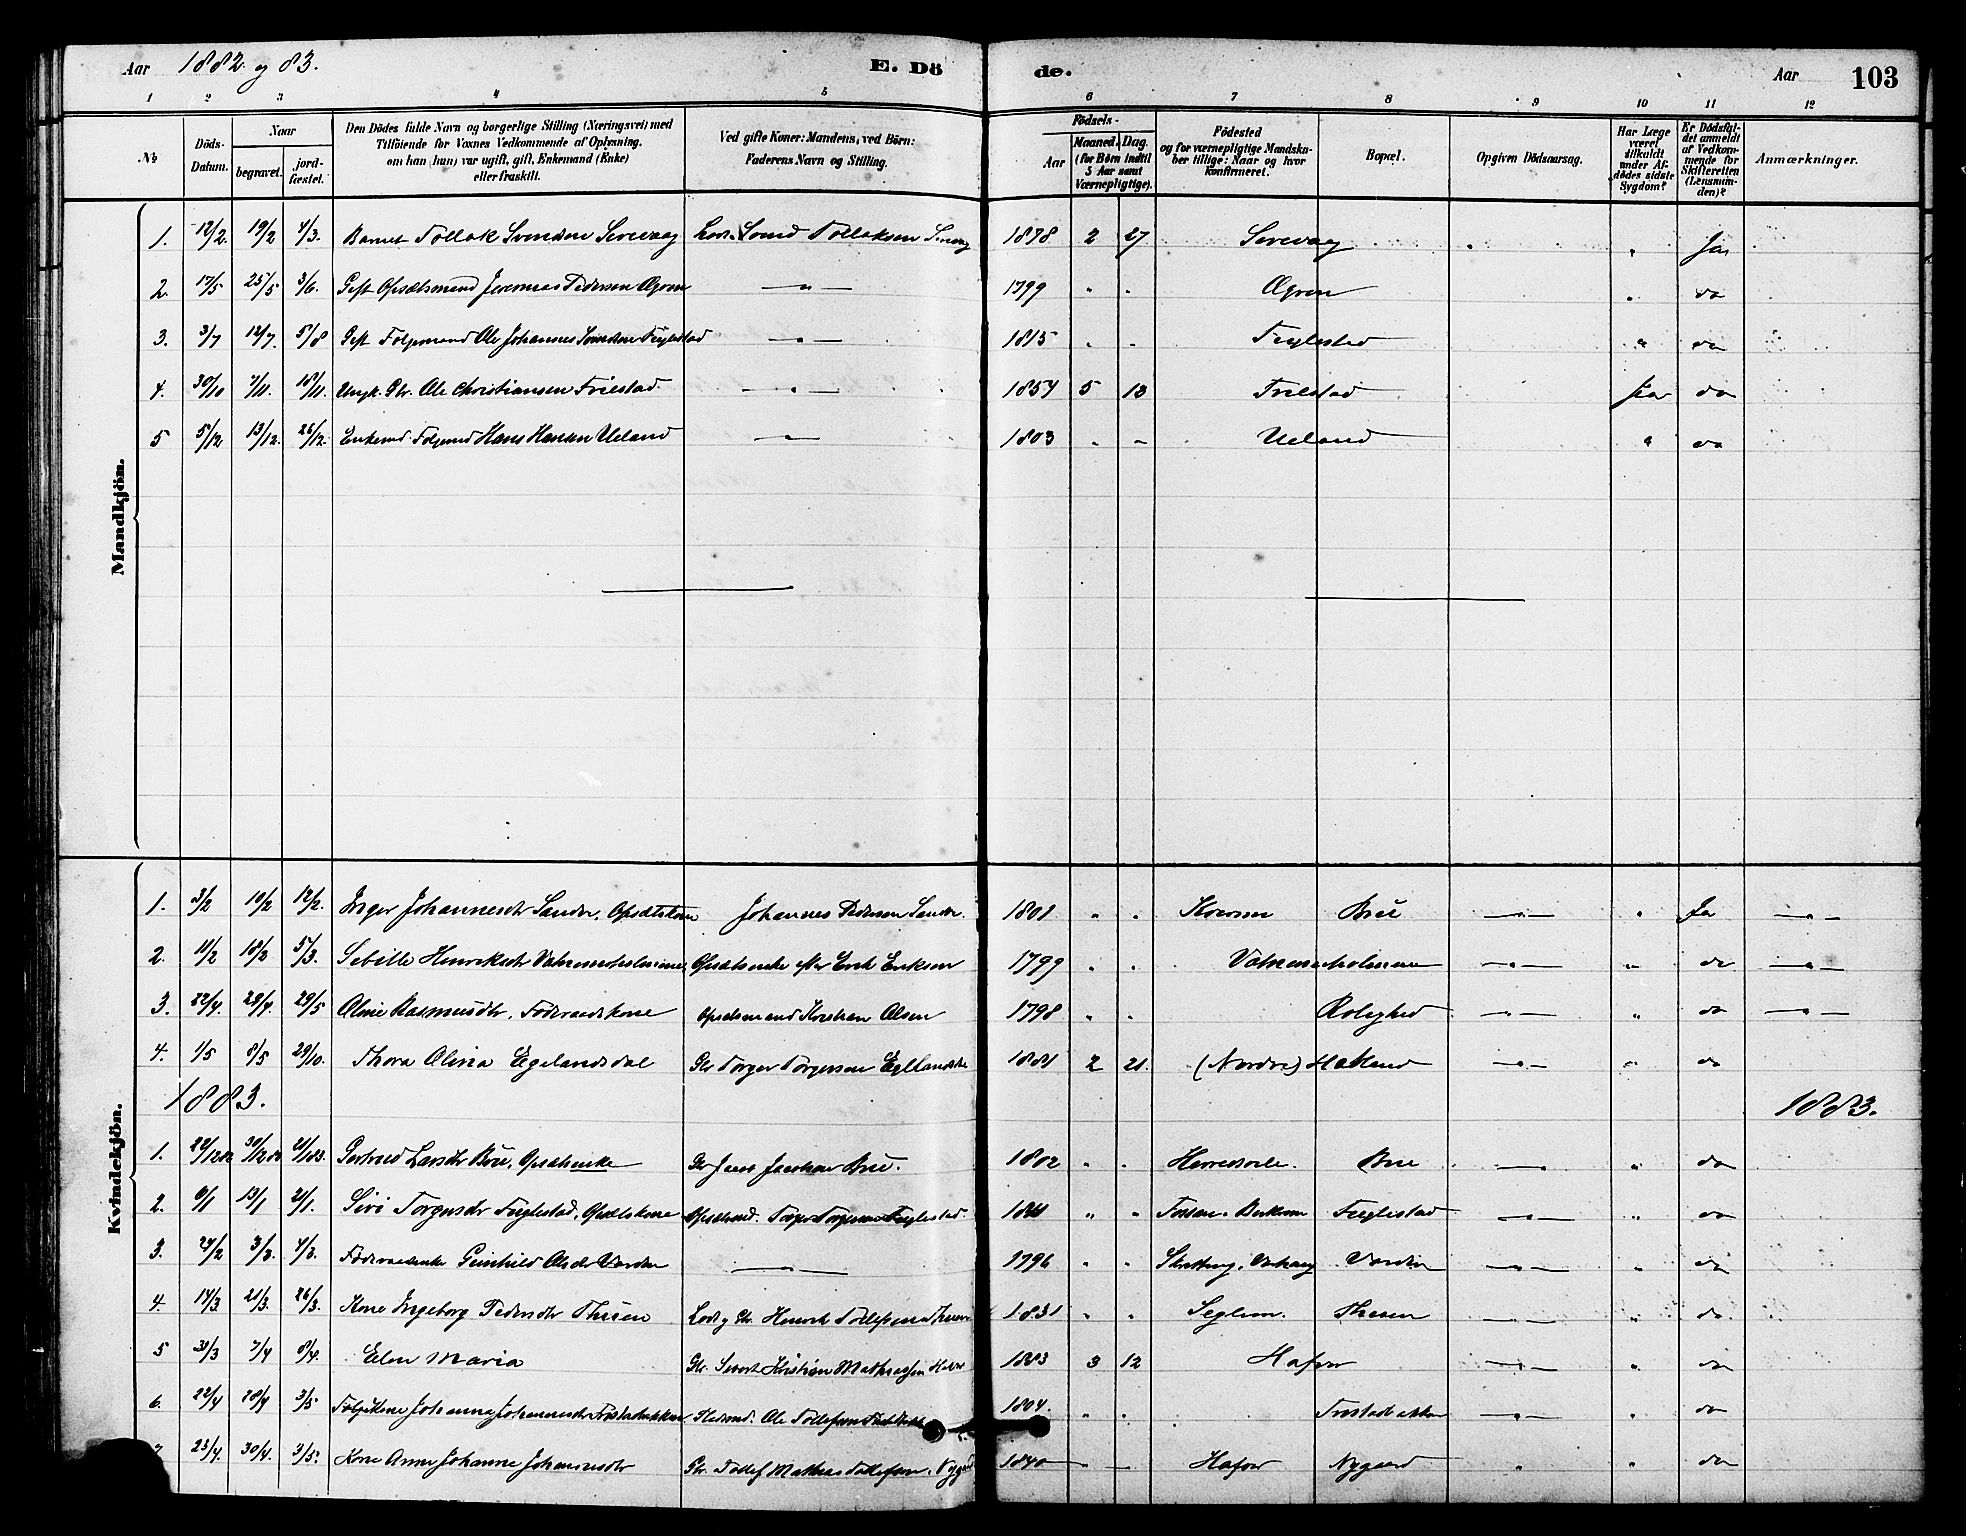 Aar 1882 og 83. E. Dö de. Aar 103
1 2 3 4 5 6 7 8 9 10 11 12
No
Döds-Datum.
Naar begravet. jord-fæstet.
Den Dödes fulde Navn og borgerlige Stilling (Næringsvei) med Tilföiende for Voxnes Vedkommende af Oplysning, om han (hun) var ugift, gift, Enkemand (Enke) eller fraskilt.
Ved gifte Koner: Mandens, ved Börn: Faderens Navn og Stilling.
Födsels-
Aar Maaned. Dag. (for Börn indtil 5 Aar samt Værnepligtige).
Födested og for værnepligtige Mandskaber tillige: Naar og hvor konfirmeret.
Bopæl.
Opgiven Dödsaarsag.
Har Læge været tilkaldt under Afdödes sidste Sygdom?
Er Dödsfaldet anmeldt af Vedkommende for Skifteretten (Lensmanden)?
Anmærkninger.
Mandkjön.
1. 12/2. 19/2 4/3. Barnet Tollak Svendsen Sirevaag Svend Tollaksen 1878 2 27 Sirevaag " Ja
2. 17/5 25/5 3/6. Gift Opsætsmand Jeremias Pedersen Ogron " 1799 " " Ogron " do
3. 3/7 12/7. 5/8 Gift Folgemand Ole Johannes Svendsen Fuglestad " 1815 " " Fuglestad " do
4. 30/10 7/11. 18/11. Ungk. Gbr. Ole Christiansen Friestad. " 1854 5 13 Friestad Ja do
5 5/12 13/12. 26/12. Enkemd. Folgemd Hans Hansen Ueland " 1803 " " Ueland " do
Kvindekjön.
1. 3/2 10/2 12/2. Inger Johannesdr Sandve, Opsætskone Johannes Pedersen Sandve. 1801 " " Brue " " Ja "
2. 11/2 18/2 5/3. Sebille Henriksdr Opsætsenke efter Erik Eriksen 1799 " " " " do "
3. 22/4. 28/4. 29/5 Oline Rasmusdtr. Föderaadskone Opsætsmand Kristian Olsen 1798 " " Rolighed " " do "
4. 1/5 8/5 29/10. Thora Olivia Egelandsdal Gbr Torger Torgersen 1881 2 21. (Nordre) Hetland " " do
1883. 1883.
1. 29/12 82 30/12 82 21/1 83. Gertrud Larsdtr Brue, Opsætsenke Gbr Jacobsen Brue. 1802 " " Brue " " do
2. 6/1 13/1 21/1. Siri Torgersdr Fuglestad, Opsætskone Opsætsmd. Torger Torgersen Fuglestad. " " Fuglestad " " do
3. 24/2 3/3 4/3. Föderaadsenke Gunhild Olsdr Varden " 1796 " " Varden " " do
4. 14/3 21/3. 26/3. Kone Ingeborg Pedersdtr Thuen Gbr. Henrik Tollefsen Thuen 1831 " " Seglem. Thuen " " do
5 31/3 7/4 8/4. Elen Maria Gbr. Sivert Kristian Mathiassen 1883 3 12 Hafsø " " do
6. 22/4 28/4 3/5 Johanna Johannesdr Ole Tollefsen 1804. " " " " do
7. 23/4. 30/4. 3/5. Kone Anne Johanne Johannesdtr Gbr. Tollef Mathias Tollefsen, Nygaard 1840 Hafsø Nygaard " " do